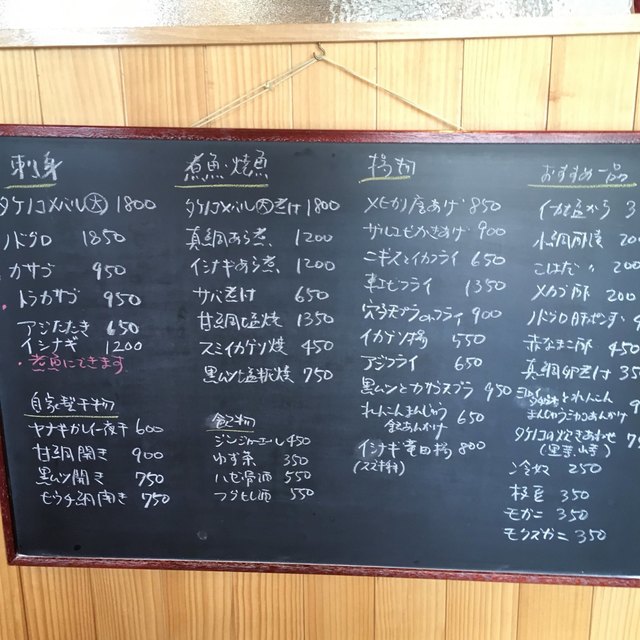 刺身
タケノコメバル(大) 1800
ノドグロ 1850
カサゴ 950
トラカサゴ 950
アジたたき 650
イシナギ 1200
・煮魚にできます
自家製干物
ヤナギカレイ一夜干 600
甘鯛開き 900
黒ムツ開き 750
モウチ網開き 750
煮魚・焼魚
タケノコメバル(大)煮付 1800
真鯛あら煮 1200
イシナギあら煮 1200
サバ煮付 650
甘鯛塩焼 1350
スミイカゲソ焼 450
黒ムツ塩糀焼 750
飲物
ジンジャーエール 450
ゆず茶 350
ハゼ骨酒 550
フグヒレ酒 550
揚物
メヒカリ唐あげ 850
サルエビかきあげ 900
ニギスとイカフライ 650
車エビフライ 1350
穴子天プラorフライ 900
イカゲソ揚 550
アジフライ 650
黒ムツとカサゴ天プラ 950
れんこんまんじゅう 650
イシナギ竜田揚 800
おすすめ一品
イカ塩から
こはだ 〃 200
メカブ酢 200
ノドグロ
赤なまこ酢 450
真鯛卵煮 350
れんこん
まんじゅうカニあんかけ
タケノコの炊きあわせ
冷奴 250
枝豆 350
モガニ 350
モクズガニ 350